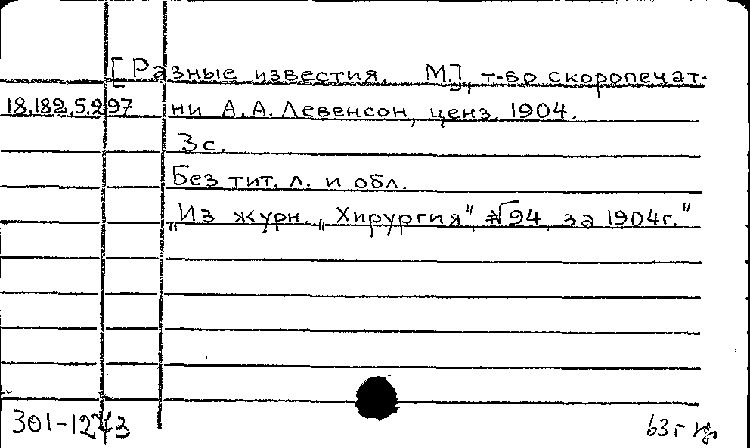 [Разные известия. М.], т-во скоропечат-
18.182.5.297 ни А.А. Левенсон, ценз. 1904.
3 с.
Без тит. л. и обл.
„Из журн. „Хирургия" №94, за 1904г."
301-1243 63г